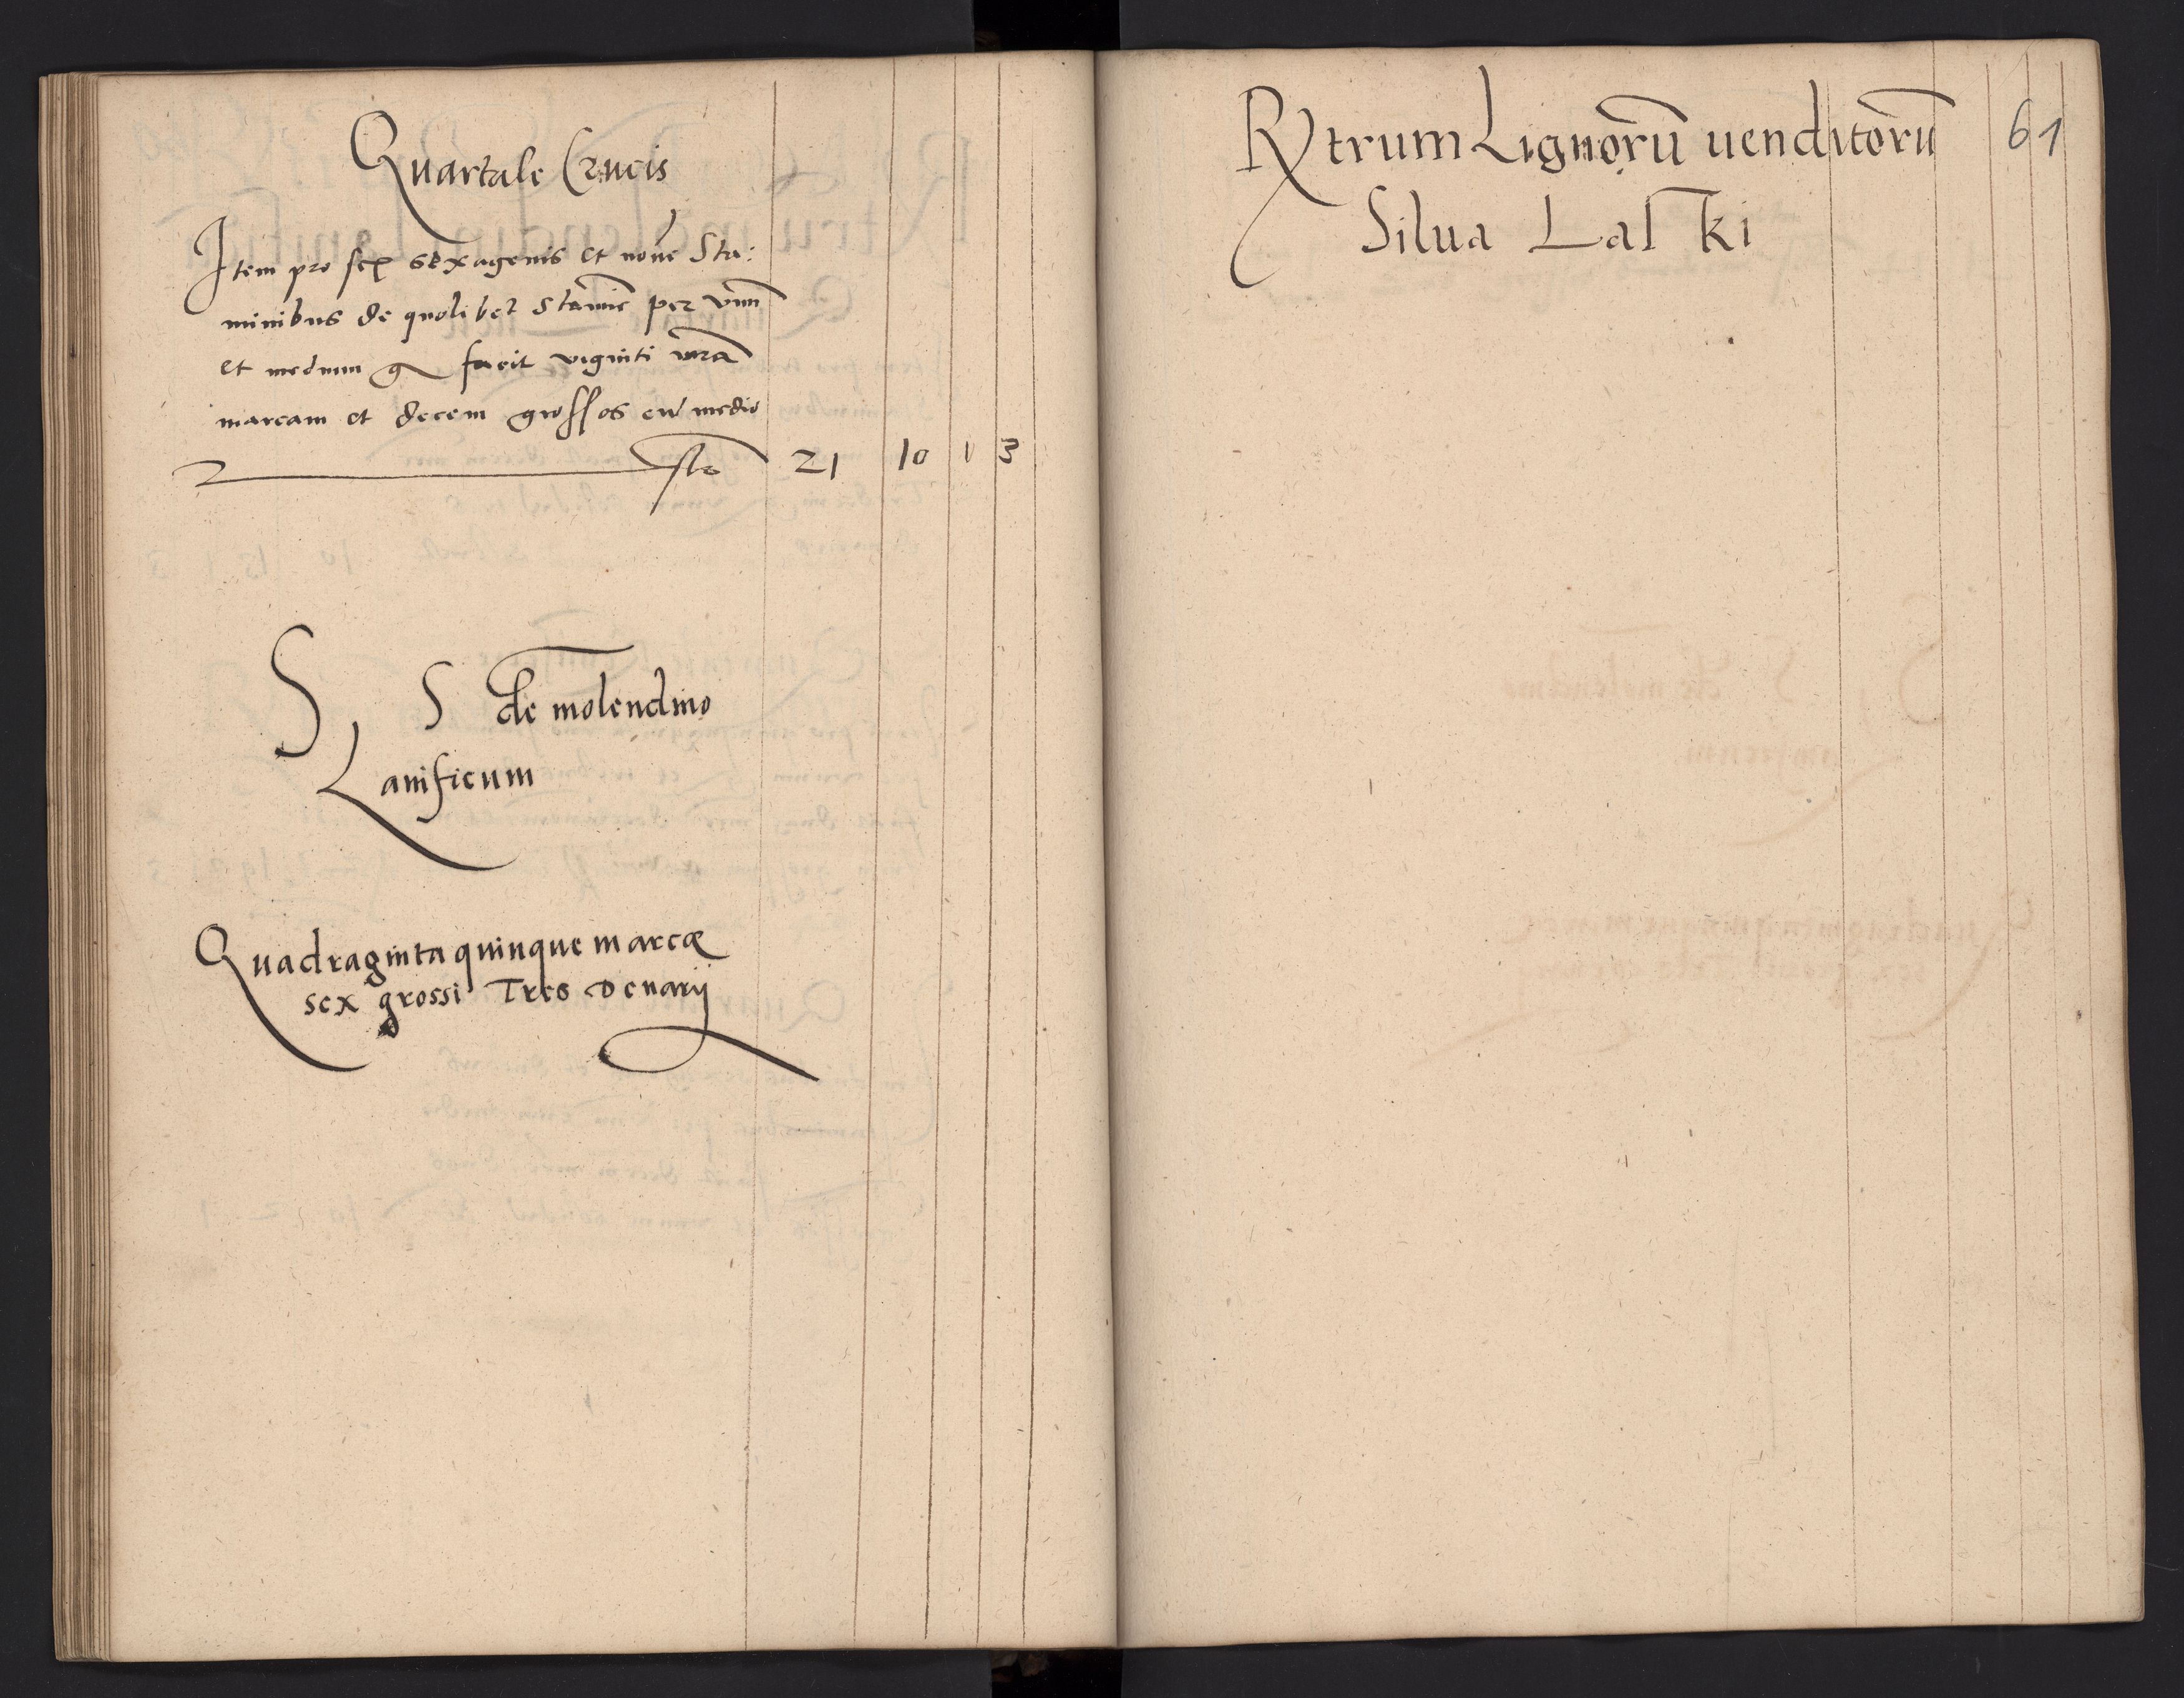 Quartale Crucis
Item pro sex sexagenis et nove Sta:
minibus de quolibet stamie per vnu
et medium g facit viginti vna
marcam et decem grossos cu medio
fto 21 10 1 3
S S de molendino
Lanificum
Quadraginta quinque marcæ
sex grossi Tres Denarij
Rtrum Lignorū uenditorū 61
Silua Las ki